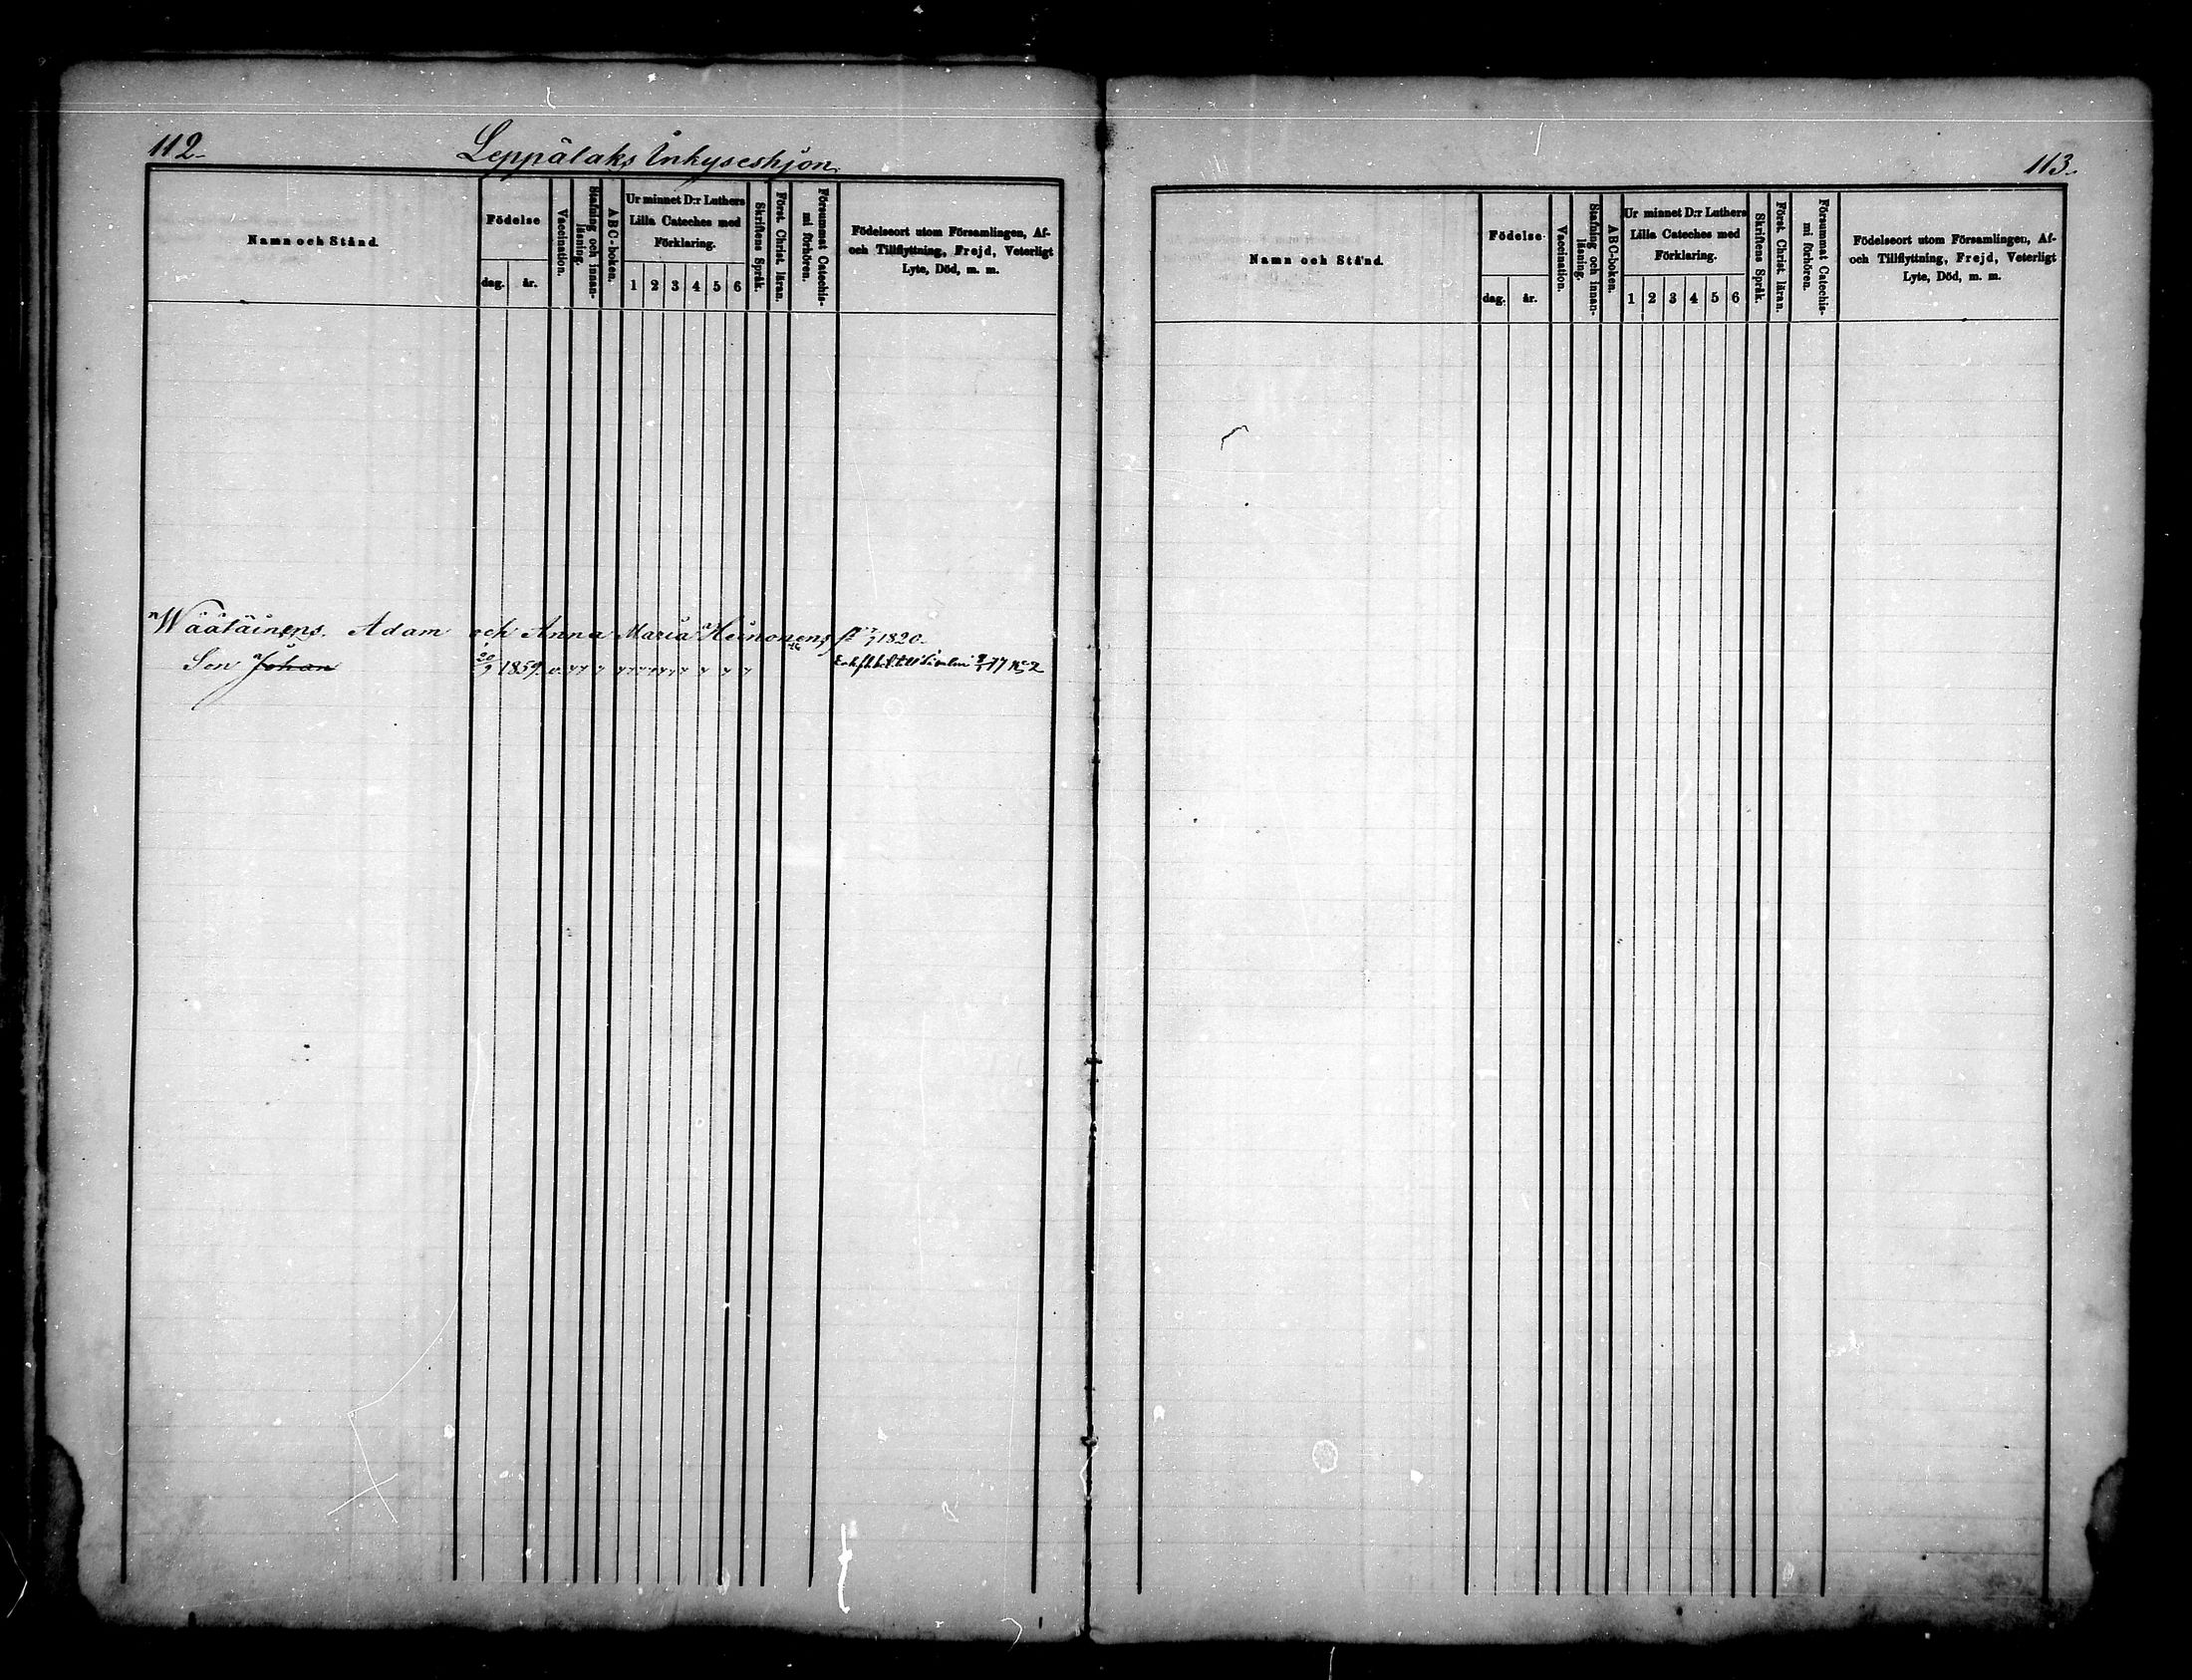 112.
Leppälaks Inhyseshjon.
Namn och Stånd.
Födelse
dag.
år.
Vaccination.
Stafning och innan-
läsning.
ABC-boken.
Ur minnet D:r Luthers
Lilla Cateches med
Förklaring.
1 2 3 4 5 6
Skriftens Språk.
Först. Christ. läran.
Försummat Catechis-
mi förhören.
Födelseort utom Församlingen, Af-
och Tillflyttning, Frejd, Veterligt
Lyte, Död, m. m.
Wäätäinens. Adam och Anna Maria Heinonens 1820.
Son Johan 20/9 1859. v. 77 No 2
113.
Namn och Stånd.
Födelse
dag.
år.
Vaccination.
Stafning och innan-
läsning.
ABC-boken.
Ur minnet D:r Luthers
Lilla Cateches med
Förklaring.
1 2 3 4 5 6
Skriftens Språk.
Först. Christ. läran.
Försummat Catechis-
mi förhören.
Födelseort utom Församlingen, Af-
och Tillflyttning, Frejd, Veterligt
Lyte, Död, m. m.